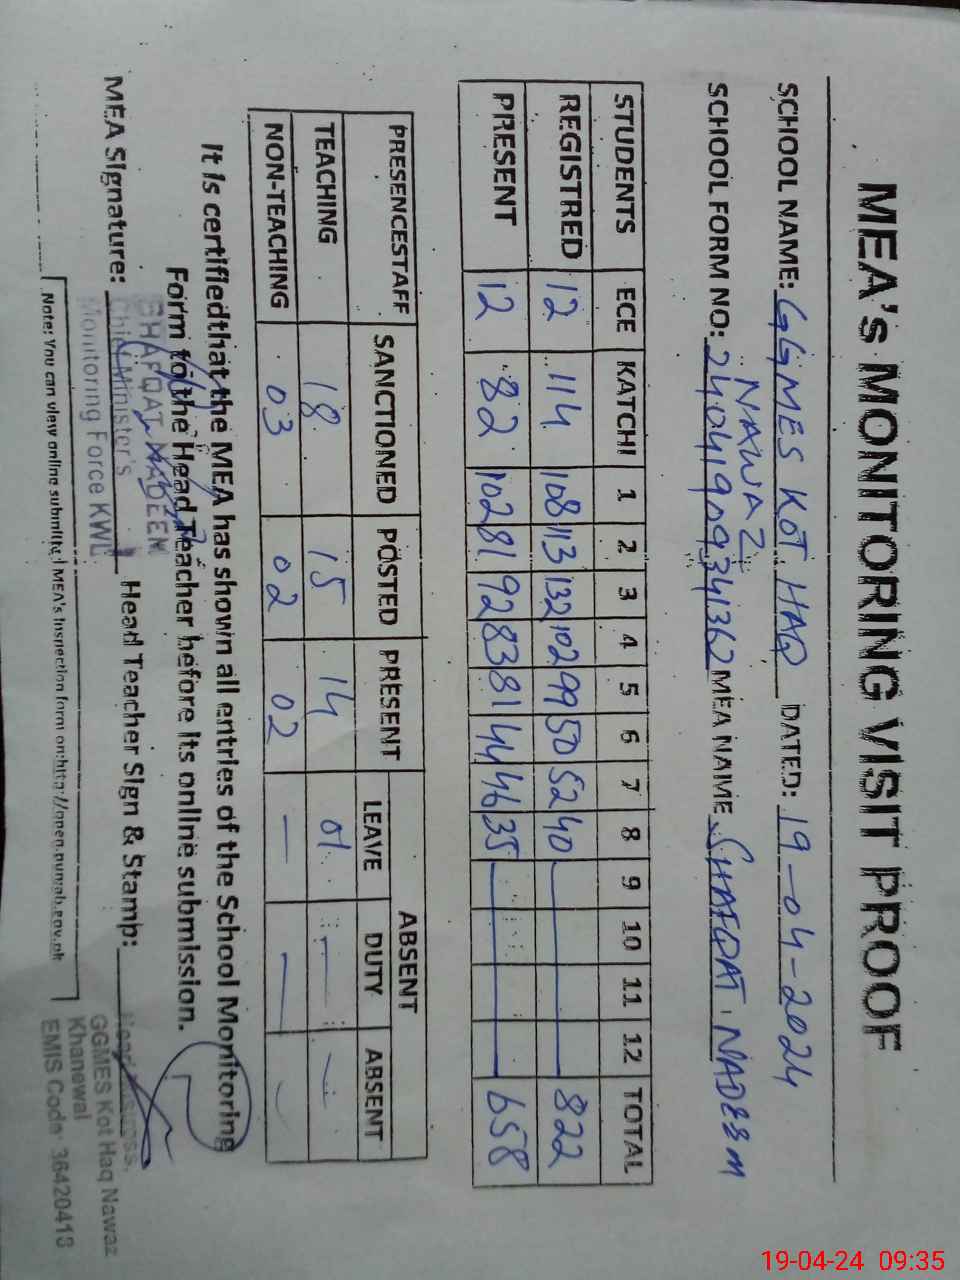 MEA's MONITORING VISIT PROOF
SCHOOL NAME: GGMES KOT HAQ DATED: 19-04-2024
NAWAZ
SCHOOL FORM NO: 24041909341362 MEA NAME SHAFQAT NADEEM
STUDENTS ECE KATCHI 1 2 3 4 5 6 7 8 9 10 11 12 TOTAL
REGISTRED 12 114 108 113 132 102 99 50 52 40 822
PRESENT 12 82 102 81 92 83 81 44 46 35 658
PRESENCESTAFF SANCTIONED POSTED PRESENT ABSENT
LEAVE DUTY ABSENT
TEACHING 18 15 14 01 — —
NON-TEACHING 03 02 02 — — —
It is certifiedthat the MEA has shown all entries of the School Monitoring
Form to the Head Teacher before its online submission.
MEA Signature: Head Teacher Sign & Stamp:
SHAFQAT NADEEM
Chief Minister's
Monitoring Force KWL
GGMES Kot Haq Nawaz
Khanewal
EMIS Code: 36420418
Note: You can view online submitted MEA's Inspection form on:http://open.punjab.gov.pk
19-04-24 09:35